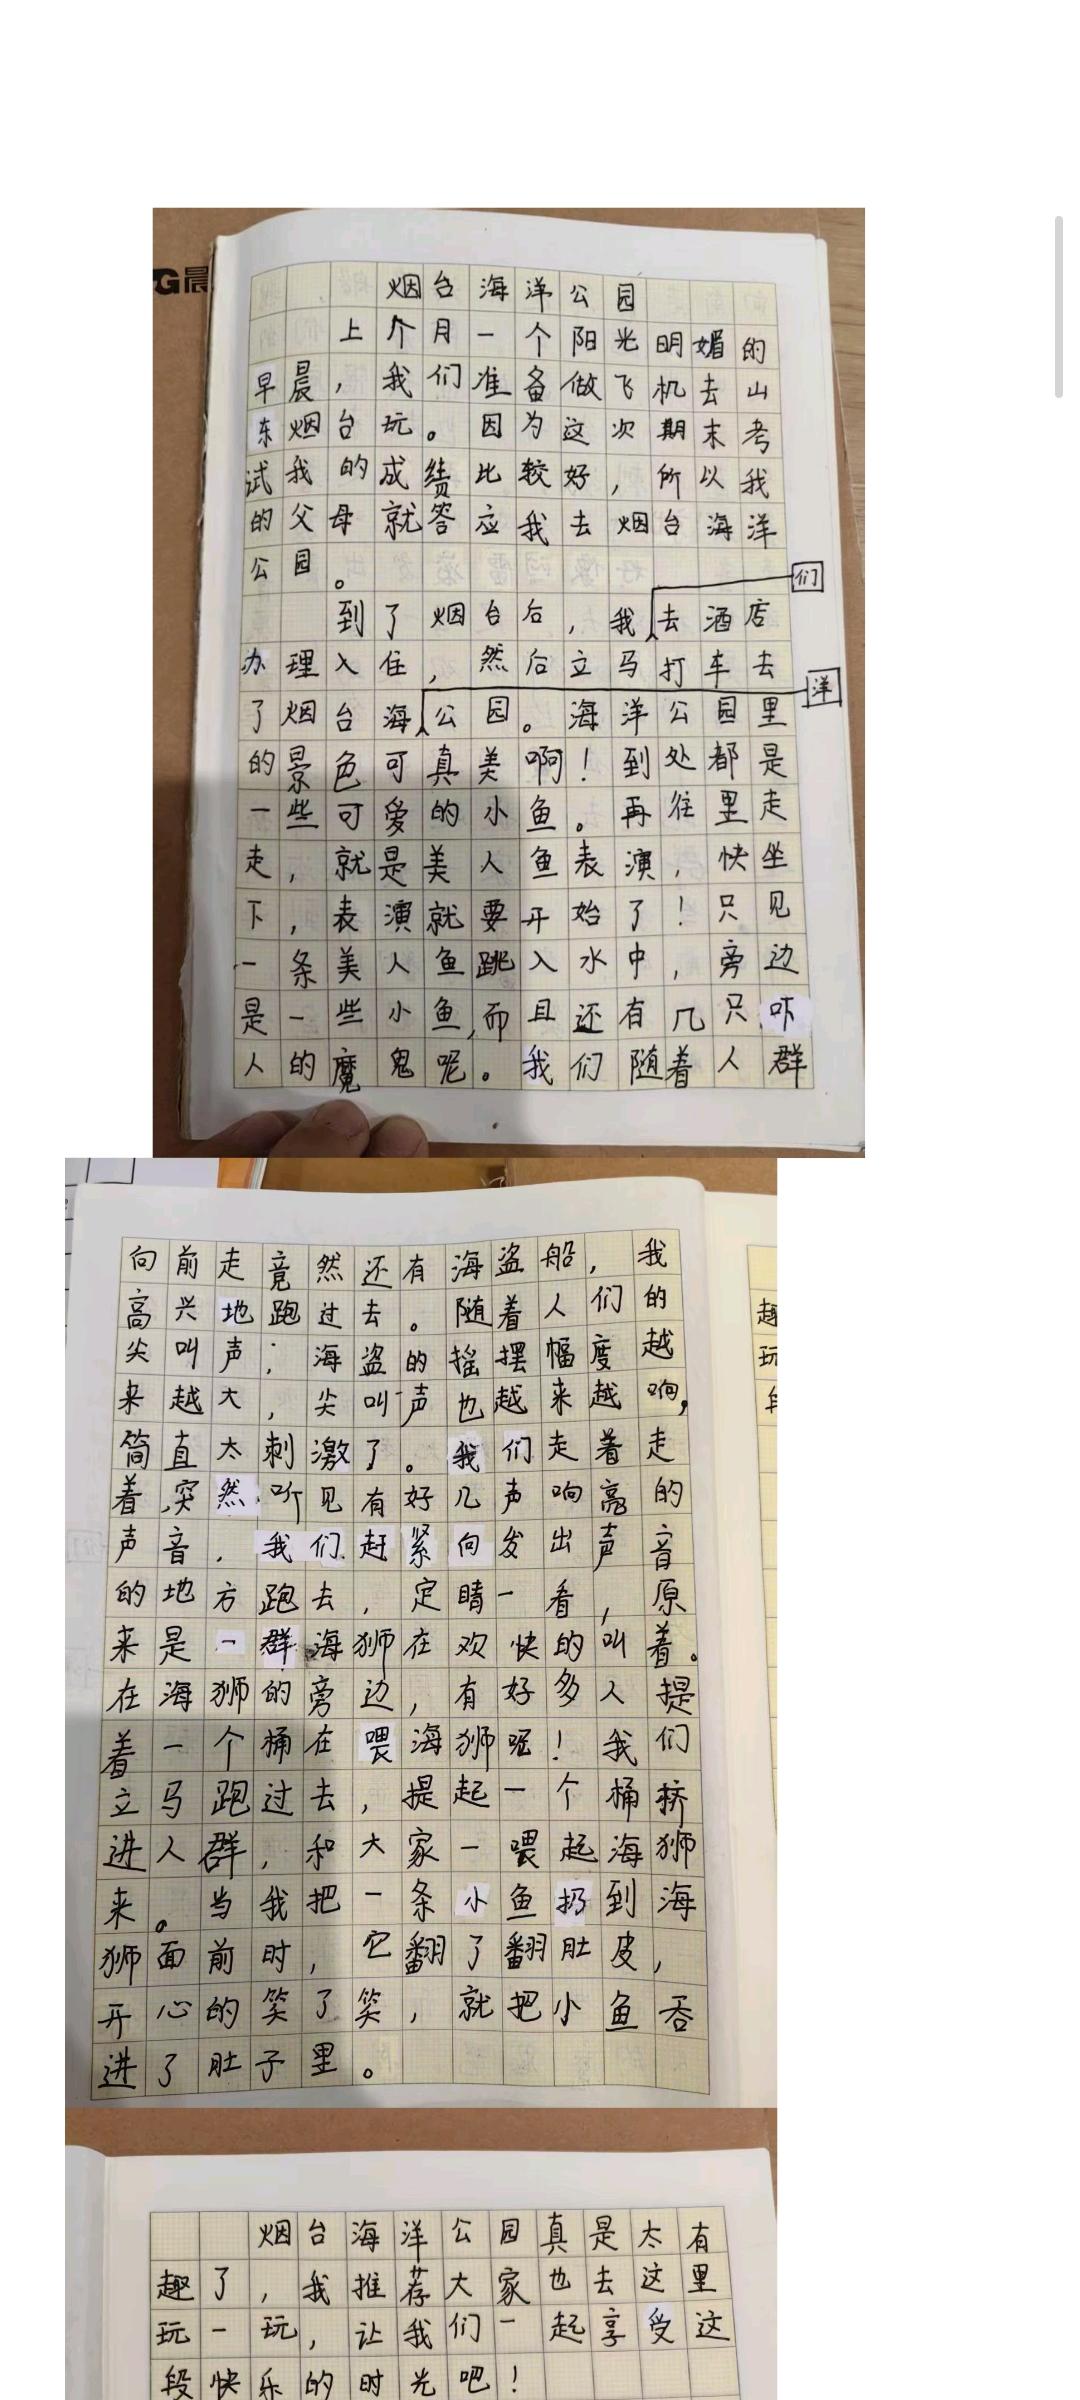 晨
烟台海洋公园
上个月一个阳光明媚的
早晨，我们准备做飞机去山
东烟台玩。因为这次期末考
试我的成绩比较好，所以我
的父母就答应我去烟台海洋
公园。
们
到了烟台后，我去酒店
办理入住，然后立马打车去
洋
了烟台海公园。海洋公园里
的景色可真美啊！到处都是
一些可爱的小鱼。再往里走
走，就是美人鱼表演，快坐
下，表演就要开始了！只见
一条美人鱼跳入水中，旁边
是一些小鱼，而且还有几只吓
人的魔鬼呢。我们随着人群
向前走竟然还有海盗船，我
高兴地跑过去。随着人们的
尖叫声；海盗的摇摆幅度越
来越大，尖叫声也越来越响，
简直太刺激了。我们走着走
着，突然听见有好几声响亮的
声音，我们赶紧向发出声音
的地方跑去，定睛一看，原
来是一群海狮在欢快的叫着。
在海狮的旁边，有好多人提
着一个桶在喂海狮呢！我们
立马跑过去，提起一个桶挤
进人群，和大家一喂起海狮
来。当我把一条小鱼扔到海
狮面前时，它翻了翻肚皮，
开心的笑了笑，就把小鱼吞
进了肚子里。
趣
玩
烟台海洋公园真是太有
趣了，我推荐大家也去这里
玩一玩，让我们一起享受这
段快乐的时光吧！